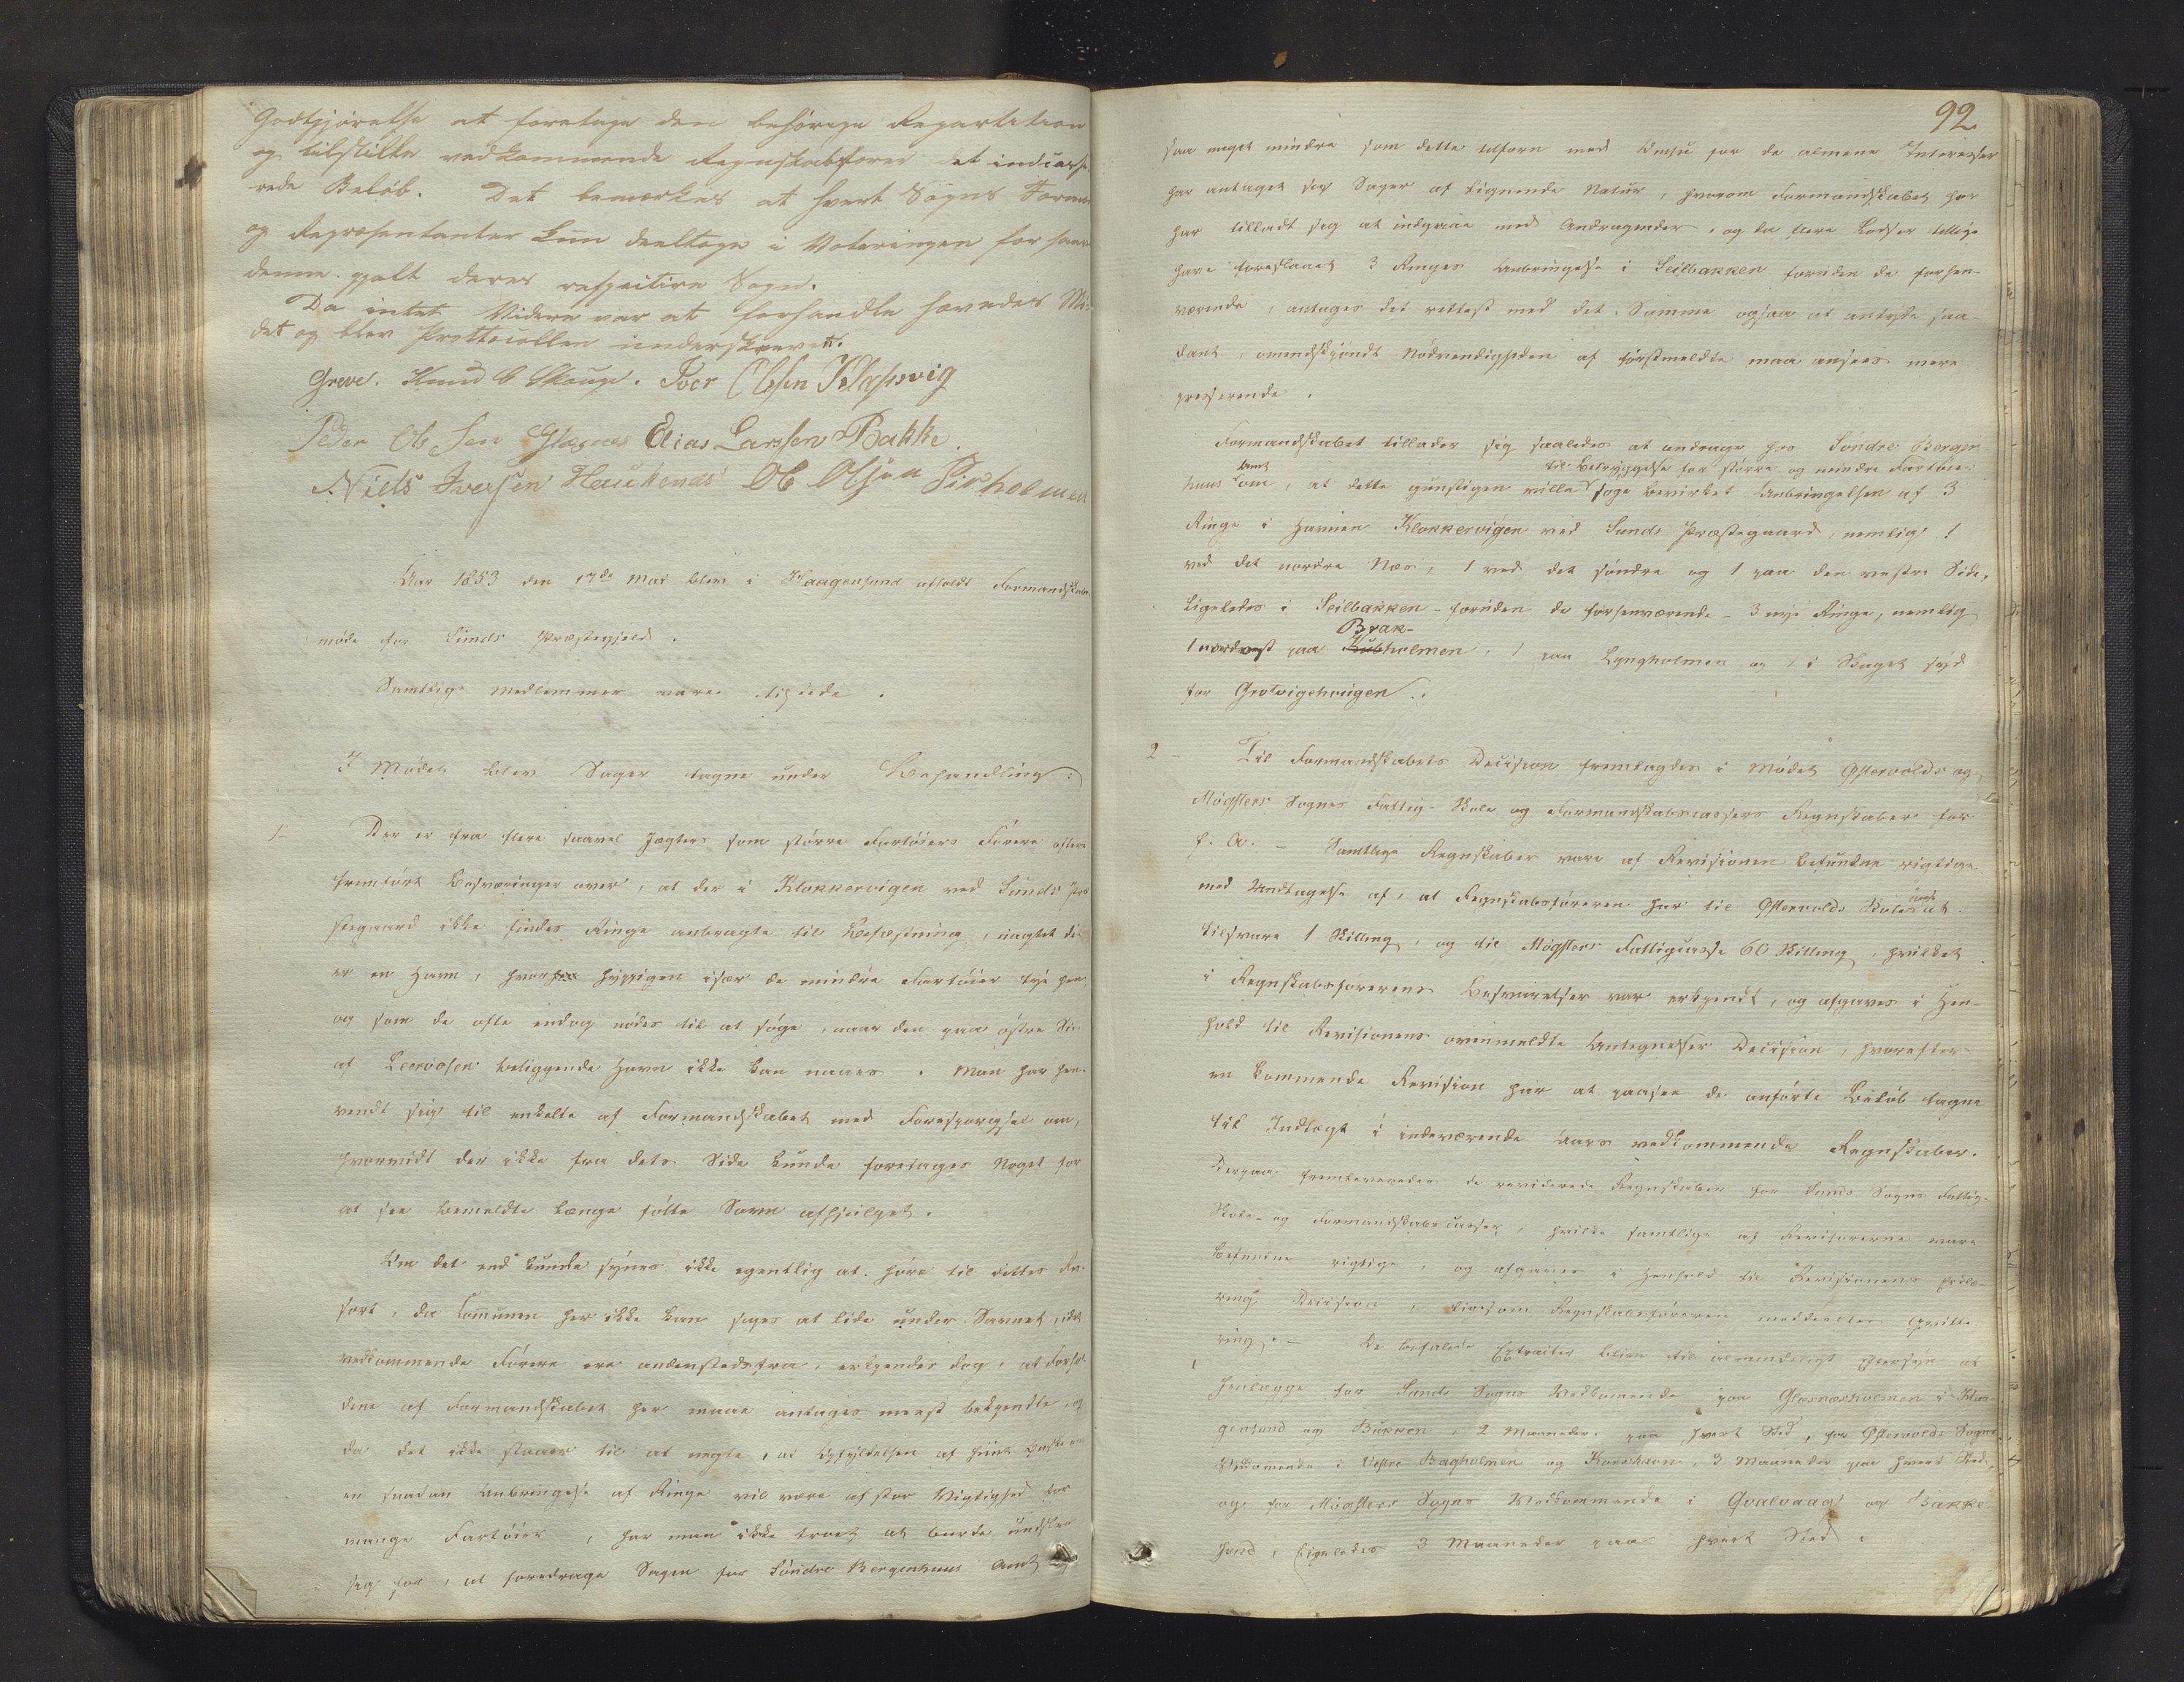 Godtgjørelse at foretage den behørige Repartition
og tilstille vedkommende Regnskabsfører det indcasse-
rede Beløb. Det bemærkes at hvert Sogns Formænd
og Repræsentanter kun deeltoge i Voteringen for saavidt
denne gjalt deres respective Sogn.
Da intet Videre var at forhandle hævedes Mø-
det og blev Protocollen underskreven.
Greve. Knud C Skouge. Iver Olsen Klepsvig
Peder Ol Sen Glæsnes Elias Larssen Bakke
Niels Iversen Haukenæs Ole Olsen Sirholmen
Aar 1853 den 17de Mai blev i Haagensund afholdt Formandskabs-
møde for Sunds Præstegjeld.
Samtlige Medlemmer vare tilstede.
I Mødet blev Sager tagne under Behandling:
1- Der er fra flere saavel Jægters som større Fartøiers Førere oftere
fremført Besværinger over, at der i Klokkervigen ved Sunds Præ-
stegaard ikke findes Ringe anbragte til Befæstning, uagtet det
er en Havn, hvor hyppigen især de mindre Fartøier tye hen
og som de ofte endog nødes til at søge, naar den paa østre Side
af Leerosen beliggende Havn ikke kan naaes. Man har hen-
vendt sig til enkelte af Formandskabet med Forespørgsel om,
hvorvidt der ikke fra dets Side kunde foretages Noget for
at see bemeldte længe følte Savn afhjulpet.
Om det end kunde synes ikke egentlig at høre til dettes Re-
sort, da Communen her ikke kan siges at lide under Savnet, idet
vedkommende Førere ere andenstedsfra, erkjendes dog, at Forhol-
dene af Formandskabet her maae antages meest bekjendte, og
da det ikke staaer til at negte, at Opfyldelsen af hiint Ønske om
en saadan Anbringelse af Ringe vil være af stor Vigtighed for
mange Fartøier, har man ikke troet at burde undslaa
sig for, at foredrage Sagen for Søndre Bergenhuus Amt
92
saa meget mindre som dette tilforn med Omhu for de almene Interesser
har antaget sig Sager af lignende Natur, hvorom Formandskabet her
har tilladt sig at indgaae med Andragender, og da flere Lodser tillige
have foreslaaet 3 Ringes Anbringelse i Seilbakken foruden de forhen-
værende, antages det rettest med det Samme ogsaa at antyde saa-
dant, omendskjøndt Nødvendigheden af førstmeldte maa ansees mere
presserende.
Formandskabet tillader sig saaledes at andrage hos Søndre Bergen-
huus Amt om, at dette gunstigen ville til Betryggelse for større og mindre Fartøier søge bevirket Anbringelsen af 3
Ringe i Havnen Klokkervigen ved Sunds Præstegaard, nemlig 1
ved det nordre Næs, 1 ved det søndre og 1 paa den vestre Side,
ligeledes i Seilbakken - foruden de forhenværende - 3 nye Ringe, nemlig
1 nordvest paa Brak-holmen, 1 paa Lyngholmen og 1 i Skaget syd
for Grotvigehougen.
2 - Til Formandskabets Decision fremlagdes i Mødet Østervolds og
Møgsters Sognes Fattig- Skole og Formandskabscassers Regnskaber for
f. A. - Samtlige Regnskaber vare af Revisionen befundne rigtige
med Undtagelse af, at Regnskabsføreren har til Østervolds Skolecasse at
tilsvare 1 Skilling, og til Møgsters Fattigcasse 60 Skilling, hvilket
i Regnskabsførerens Besvarelser var erkjendt, og afgaves i Hen-
hold til Revisionens ovenmeldte Antegnelser Decision, hvorefter
en kommende Revision har at paasee de anførte Beløb tagne
til Indtægt i indeværende Aars vedkommende Regnskaber.
Derpaa fremleveredes de reviderede Regnskaber for Sunds Sogns Fattig-
Skole- og Formandskabscasser, hvilke samtlige af Revisorerne vare
befundne rigtige, og afgaves i Henhold til Revisionens Erklæ-
ring Decision, ligesom Regnskabsføreren meddeeltes Qvitte-
ring. - De befalede Extracter blive til almindeligt Eftersyn at
henlægge for Sunds Sogns Vedkommende paa Glæsnæsholmen i Haa-
gensund og Bukken, 2 Maaneder paa hvert Sted, for Østervolds Sogns
Vedkommende i Vestre Bagholmen og Korshavn, 3 Maaneder paa hvert Sted,
og for Møgsters Sogns Vedkommende i Qvalvaag og Bakke-
sund, ligeledes 3 Maaneder paa hvert Sted.